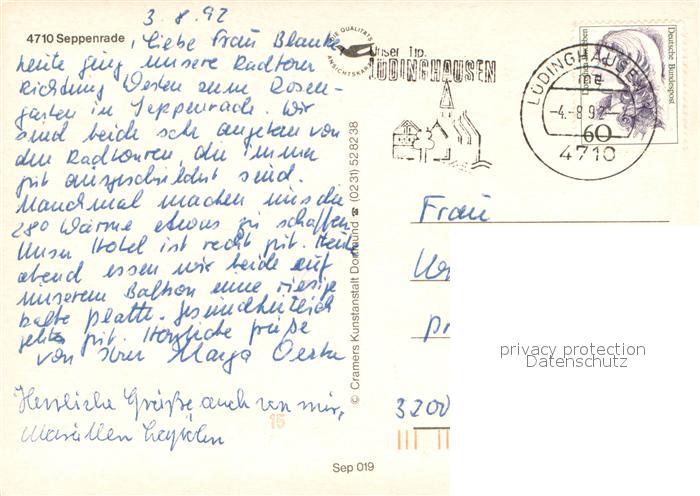 3.8.92
4710 Seppenrade
Liebe Frau Blanke,
heute ging unsere Radtour
Richtung Westen zum Rosen-
garten in Seppenrade. Wir
sind beide sehr angetan von
den Radtouren, die immer
gut ausgeschildert sind.
Manchmal machen uns die
280 Wärme etwas zu schaffen.
Unser Hotel ist recht gut. Heute
abend essen wir beide auf
unserem Balkon eine riesige
kalte Platte. Gesundheitlich
geht es gut. Herzliche Grüße
von Ihrer Marga
Herzliche Grüße auch von mir,
15
Sep 019
© Cramers Kunstanstalt Dortmund ☎ (0231) 52 82 38
DIE QUALITÄTS
ANSICHTSKARTE
Unser Tip:
LÜDINGHAUSEN
LÜDINGHAUSEN
-4.-8.92
4710
60
Deutsche Bundespost
Frau
3200
privacy protection
Datenschutz